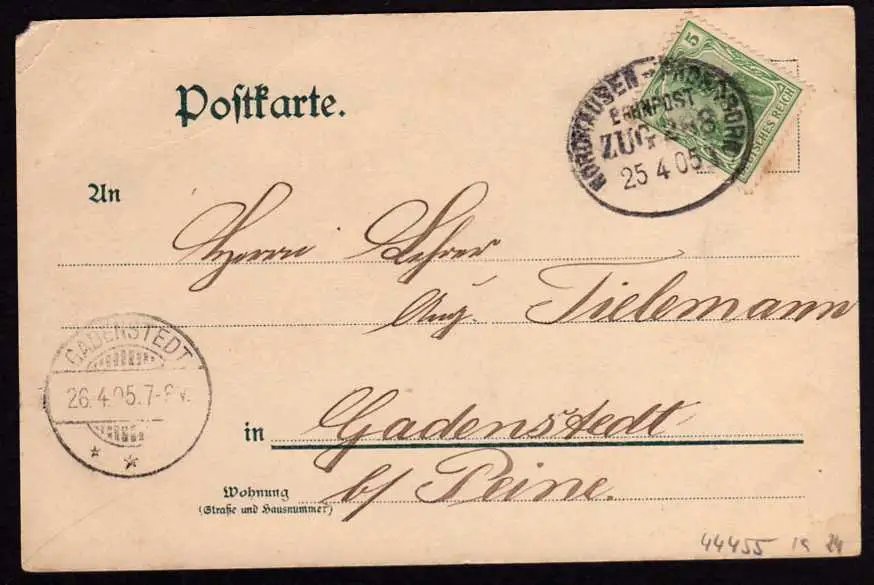 Postkarte.
5
DEUTSCHES REICH
NORDHAUSEN
BAHNPOST
ZUG
25 4 05
An
Herrn Lehrer
Aug. Tielemann
GADENSTEDT
26.4.05.7-8V.
in Gadenstedt
b/ Peine.
Wohnung
(Straße und Hausnummer)
44455 19 24